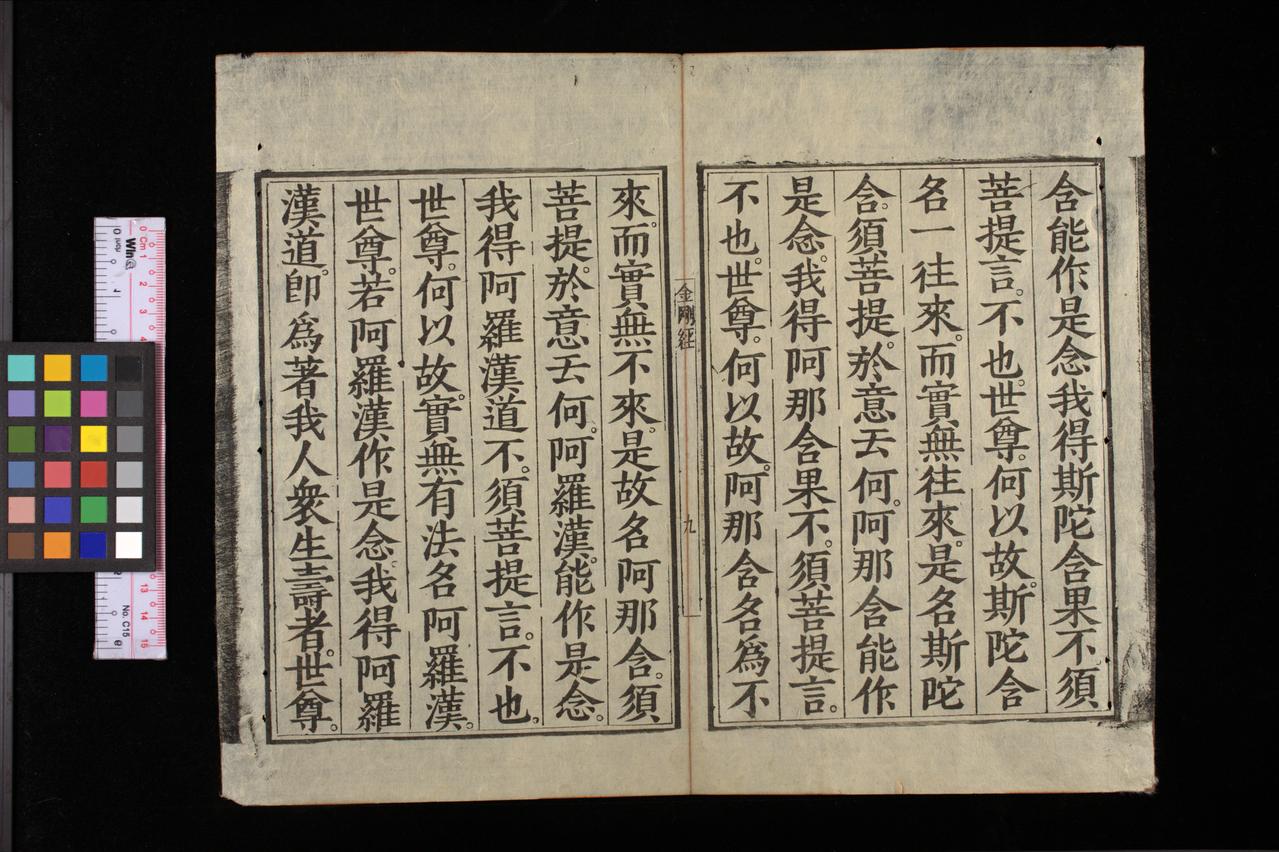 含能作是念我得斯陀含果不。須
菩提言。不也。世尊。何以故。斯陀含
名一往來。而實無往來。是名斯陀
含。須菩提。於意云何。阿那含能作
是念。我得阿那含果不。須菩提言。
不也。世尊。何以故。阿那含名爲不
金剛經
九
來。而實無不來。是故名阿那含。須
菩提。於意云何。阿羅漢。能作是念。
我得阿羅漢道不。須菩提言。不也。
世尊。何以故。實無有法名阿羅漢。
世尊。若阿羅漢作是念。我得阿羅
漢道。卽爲著我人衆生壽者。世尊。
0 Cm 1 2 3 4
13 14 15
No. C15